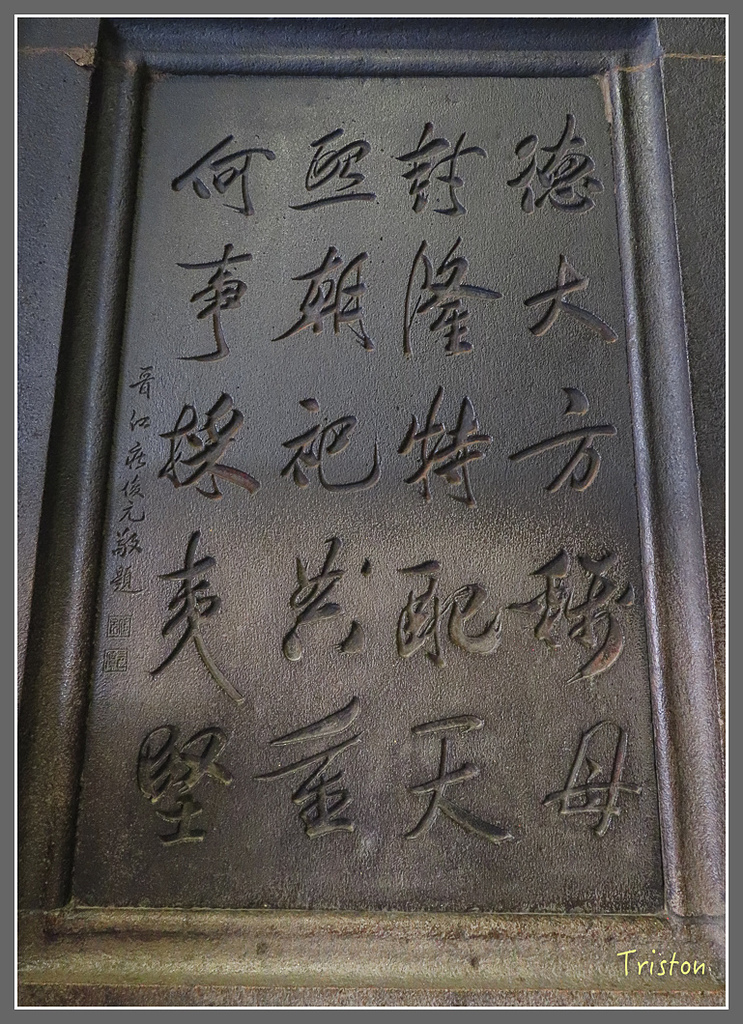 德大方稱母
封隆特配天
熙朝祀典重
何事採夷堅
晉江莊俊元敬題
Triston